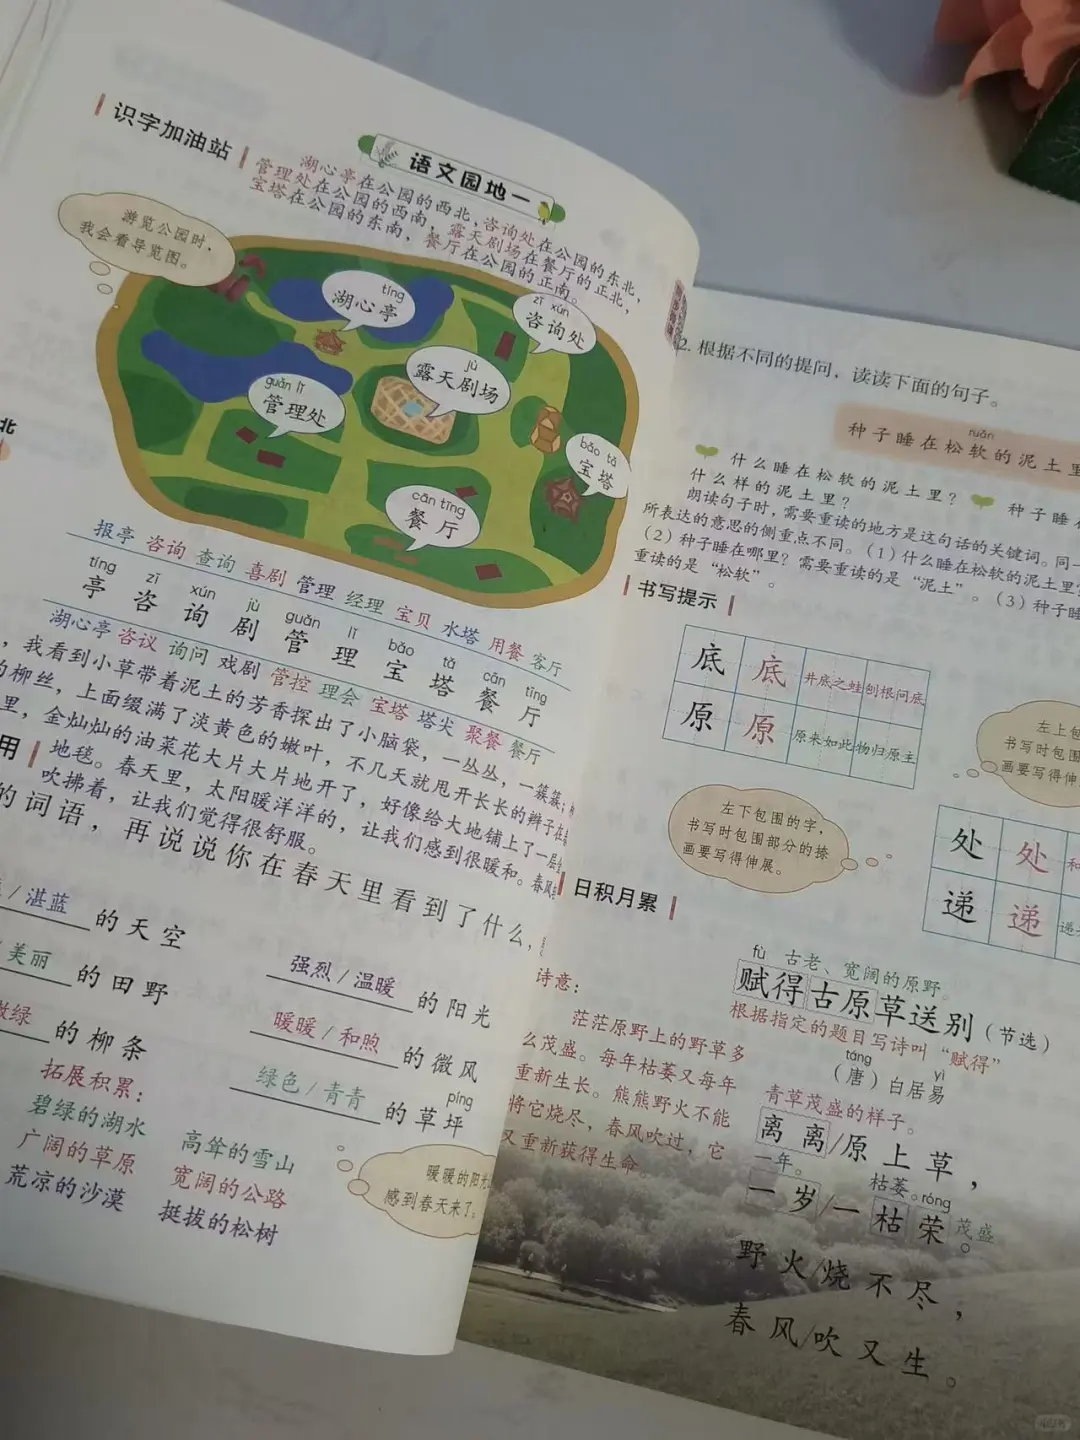 识字加油站
语文园地一
湖心亭在公园的西北，咨询处在公园的东北，
管理处在公园的西南，露天剧场在餐厅的正北，
宝塔在公园的东南，餐厅在公园的正南。
游览公园时，
我会看导览图。
tíng
湖心亭
zī xún
咨询处
jù
露天剧场
guǎn lǐ
管理处
bǎo tǎ
宝塔
cān tīng
餐厅
北
报亭 咨询 查询 喜剧 管理 经理 宝贝 水塔 用餐 客厅
tíng zī xún jù guǎn lǐ bǎo tǎ cān tīng
亭 咨 询 剧 管 理 宝 塔 餐 厅
湖心亭 咨议 询问 戏剧 管控 理会 宝塔 塔尖 聚餐 餐厅
，我看到小草带着泥土的芳香探出了小脑袋，一丛丛，一簇簇；
的柳丝，上面缀满了淡黄色的嫩叶，不几天就甩开长长的辫子在
里，金灿灿的油菜花大片大片地开了，好像给大地铺上了一层
用
地毯。春天里，太阳暖洋洋的，让我们感到很暖和。春风
吹拂着，让我们觉得很舒服。
的词语，再说说你在春天里看到了什么，
/湛蓝 的天空
强烈/温暖 的阳光
/美丽 的田野
暖暖/和煦 的微风
绿 的柳条
绿色/青青 的草坪
píng
拓展积累：
碧绿的湖水 高耸的雪山
广阔的草原 宽阔的公路
荒凉的沙漠 挺拔的松树
暖暖的阳光
感到春天来了。
2. 根据不同的提问，读读下面的句子。
ruǎn
种子睡在松软的泥土里
什么睡在松软的泥土里？ 种子睡在
什么样的泥土里？
朗读句子时，需要重读的地方是这句话的关键词。同一
所表达的意思的侧重点不同。（1）什么睡在松软的泥土里
（2）种子睡在哪里？需要重读的是“泥土”。（3）种子睡
重读的是“松软”。
书写提示
底 底 井底之蛙 刨根问底
原 原 原来如此 物归原主
左上包
书写时包围
画要写得伸
左下包围的字，
书写时包围部分的捺
画要写得伸展。
处 处
递 递
日积月累
fù
古老、宽阔的原野。
赋得古原草送别（节选）
根据指定的题目写诗叫“赋得”
táng yì
（唐）白居易
诗意：
茫茫原野上的野草多
么茂盛。每年枯萎又每年
重新生长。熊熊野火不能
将它烧尽，春风吹过，它
又重新获得生命
青草茂盛的样子。
离离/原上草，
一年。 枯萎。 róng
一岁/一枯荣。
茂盛
野火/烧不尽，
春风/吹又生。